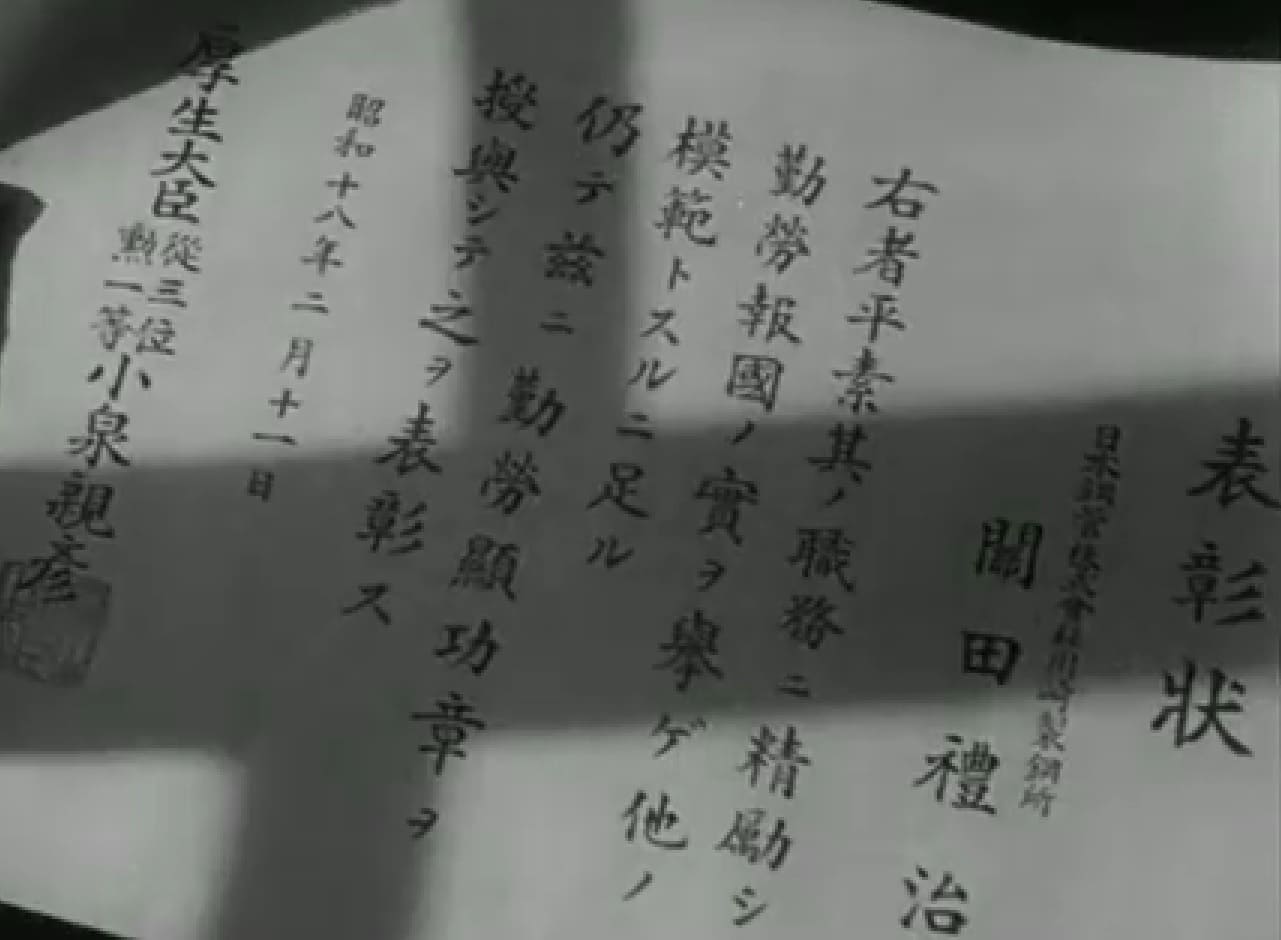 表彰狀
日本鋼管株式會社川崎製鋼所
關田禮治
右者平素其ノ職務ニ精勵シ
勤勞報國ノ實ヲ擧ゲ他ノ
模範トスルニ足ル
仍テ茲ニ勤勞顯功章ヲ
授與シテ之ヲ表彰ス
昭和十八年二月十一日
厚生大臣從三位勲一等小泉親彥